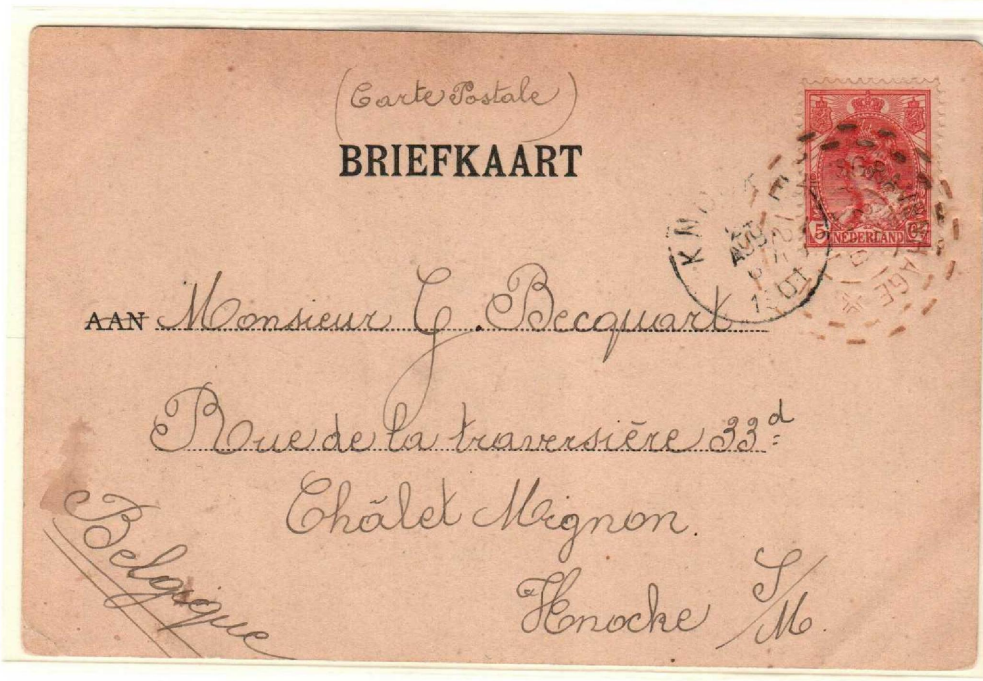 (Carte Postale)
BRIEFKAART
5 NEDERLAND
KNOCKE
AOU
1901
AAN Monsieur G. Becquart
Rue de la traversière 33d
Châlet Mignon.
Knocke S/M.
Belgique